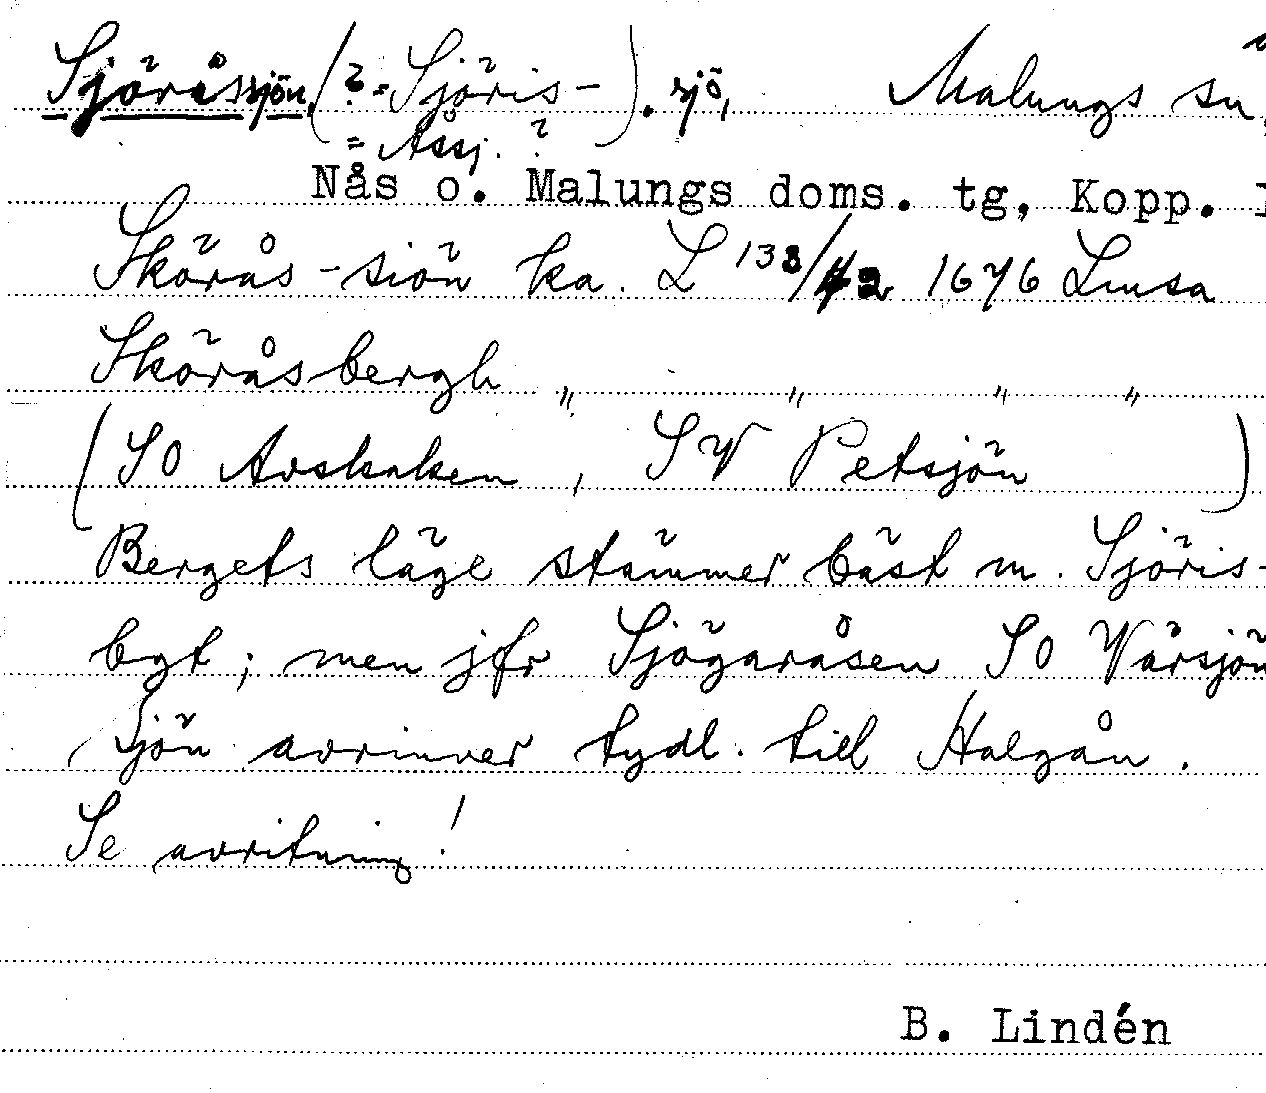 Sjöråssjön, (? = Sjöris- ). sjö, Malungs sn,
= Åssj. ?
Nås o. Malungs doms. tg, Kopp. l
Skörås-siön ka. L 133/42 1676 Limsa
Sköråsbergh " " " "
(SO Avskaken, SV Petsjön )
Bergets läge stämmer bäst m. Sjöris-
bgt; men jfr Sjögaråsen SO Vårsjön
Sjön avrinner tydl. till Halgån.
Se avritning!
B. Lindén